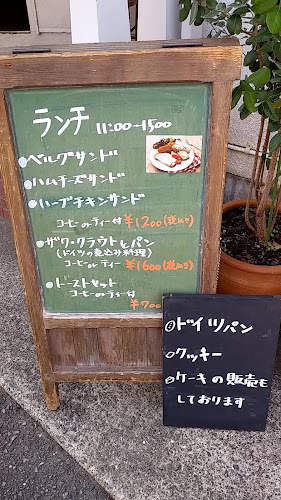 ランチ 11:00~1500
●ベルグサンド
●ハムチーズサンド
●ハーブチキンサンド
コーヒーorティー付 ¥1200(税込)
●ザワークラウトとパン
(ドイツの煮込み料理)
コーヒーorティー ¥1600(税込)
●トーストセット
コーヒーorティー付
¥700
◎ドイツパン
◎クッキー
◎ケーキの販売も
しております